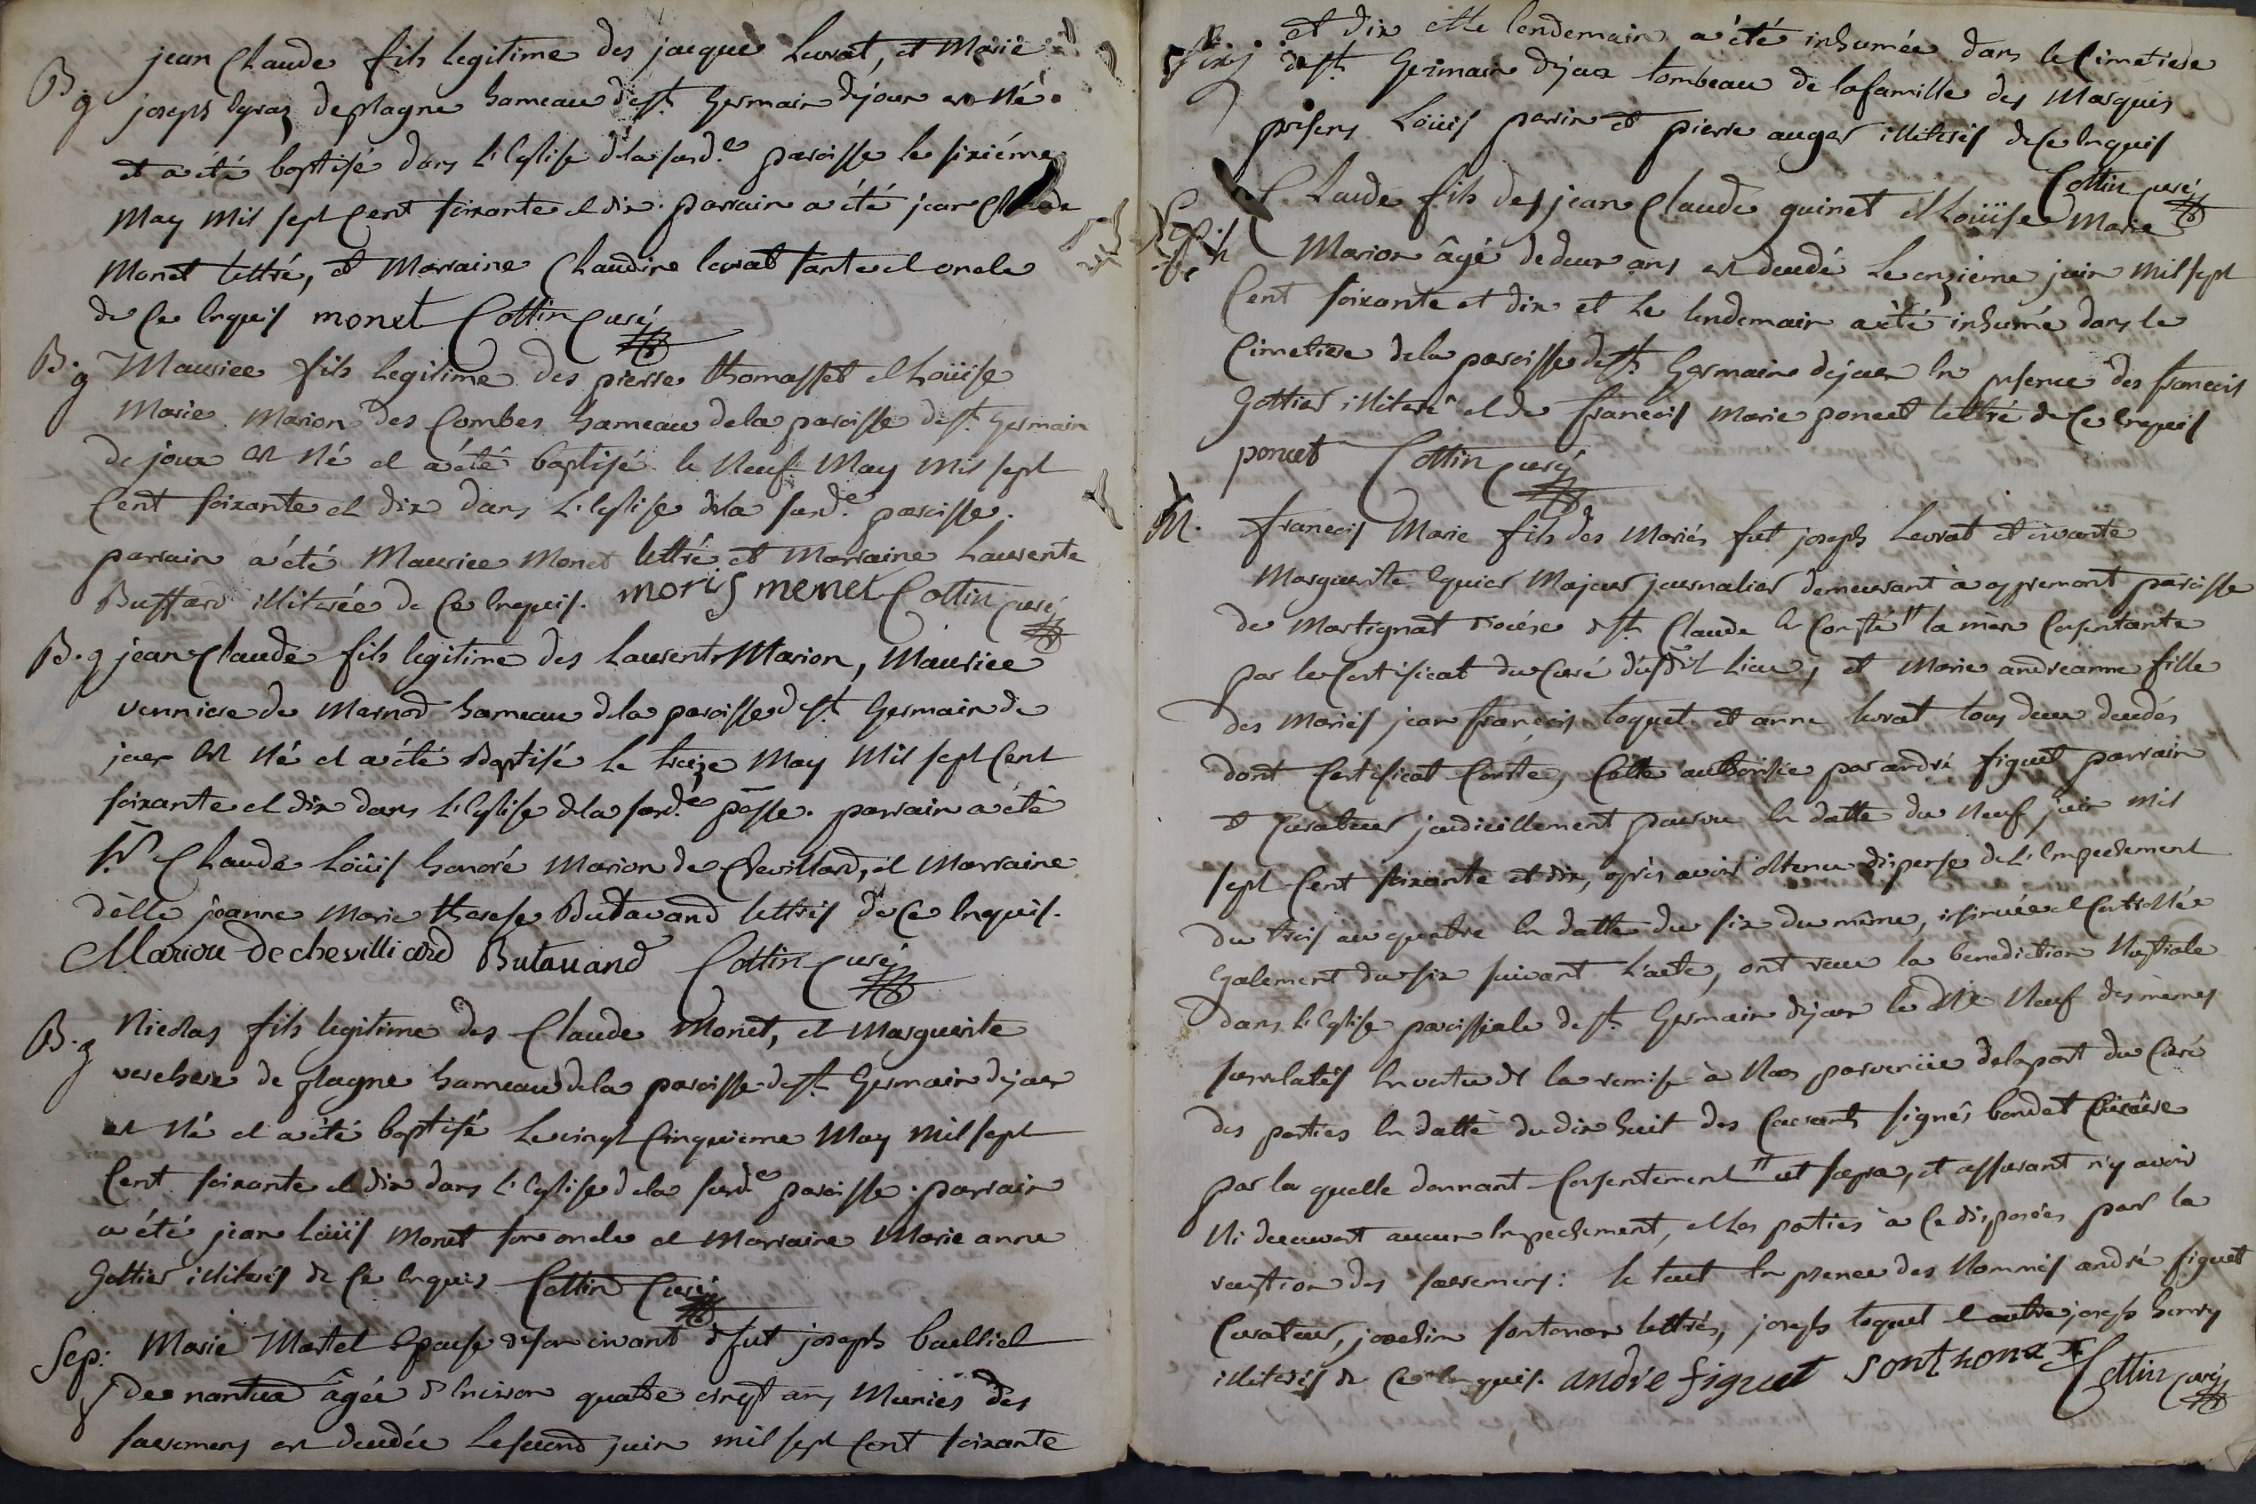 B g jean Claude fils legitime des jacque Levrat, et Marie
joseph deplagne hameau de st. Germain dejoux est né
et a été baptisé dans L'Eglise dela susd.e paroisse le sixiéme
May mil sept Cent soixante et dix. parrain a été jean Claude
Monet lettré, et Marraine Claudine levrat tante et oncle
de Ce Enquis monet Cottin Curé
B. g Maurice fils legitime des pierre thomasset et Loüise
Marie Marion des Combes hameau dela paroisse de st. Germain
de joux est Né et a été baptisé le Neuf May mil sept
Cent soixante et dix dans L'Eglise dela susd.e paroisse.
parrain a été Maurice Monet lettré et Marraine Laurente
Buffard illiterée de Ce Enquis. moris monet Cottin curé
B. g jean Claude fils legitime des Laurent Marion, Maurice
vanniere de Marnod hameau dela paroisse de st. Germain de
joux est Né et a été Baptisé Le treize May Mil sept Cent
soixante et dix dans L'Eglise dela susd.e pòsse. parrain a été
Sr. Claude Loüis honoré Marion de Chevillard, et Marraine
delle jeanne Marie therese Butavand lettrés de Ce Enquis.
Marion de chevilliard Butavand Cottin curé
B. g Nicolas fils legitime des Claude Monet, et Marguerite
verchere de plagne hameau dela paroisse de st. Germain dejoux
est Né et a été baptisé Le vingt Cinquieme May mil sept
Cent soixante et dix dans L'Eglise dela susd.e paroisse. parrain
a été jean Loüis Monet son oncle et Marraine Marie anne
Gottier illiterés de Ce Enquis Cottin Curé
Sep: Marie Martel Epouse deson vivant de fut joseph
de nantua âgée d'Environ quatre vingt ans Munies des
sacremens est decedée Lesecond juin mil sept Cent soixante
et dix et le lendemain a été inhumée dans le Cimetiere
de st. Germain dejoux tombeau de lafamille des Marquis
presens Loüis perrin et pierre auger illiterés de Ce Enquis
Cottin curé
Claude fils des jean Claude guinet et Loüise Marie
Marion âgé dedeux ans est decedé Le onzieme juin mil sept
Cent soixante et dix et Le lendemain a été inhumé dans le
Cimetiere dela paroisse de st. Germain dejoux En presence des francois
Gottier illiteré et de francois Marie poncet lettré de Ce Enquis
poncet Cottin curé
M. francois Marie fils des Mariés fut joseph Levrat et vivante
Marguerite Eguier Majeur journalier demeurant à appremont paroisse
de Martignat diocése de st. Claude En Comté la mère Consentante
par le Certificat du Curé dusdit Lieu, et Marie andréanne fille
des Mariés jean francois toquet et anne levrat tous deux decedés
dont Certificat Conste, Cette authorisée par andré figuet parrain
et Curateur judiciellement pourvu En datte du Neuf juin mil
sept Cent soixante et dix, après avoir obtenu dispense de L'Empechement
du trois au quatre En datte du six du même, insinuée et Controllée
Egalement du six suivant L'acte, ont reçu la bénediction Nuptiale
dans L'Eglise paroissiale de st. Germain dejoux le dix Neuf des mêmes
susrelatés En vertu de la remise à Nous parvenüe delapart du Curé
des parties En datte dudix huit des Courants signés bondet Vicaire
par la quelle donnant Consentement ut supra, et assurant n'y avoir
Ni decouvert aucun Empechement, et Les parties à Ce disposées par la
reception des sacremens: le tout En presence des Nommés andré figuet
Curateur, joachim sontonax lettrés, joseph toquet et autre joseph henry
illiterés de Ce Enquis. andre figuet sonthonax Cottin curé